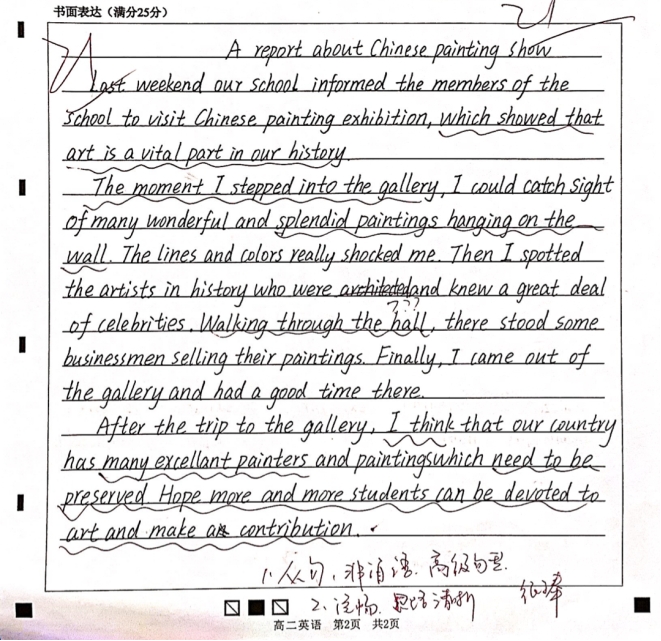 书面表达（满分25分）
21
A report about Chinese painting show
Last weekend our school informed the members of the
school to visit Chinese painting exhibition, which showed that
art is a vital part in our history.
The moment I stepped into the gallery, I could catch sight
of many wonderful and splendid paintings hanging on the
wall. The lines and colors really shocked me. Then I spotted
the artists in history who were and knew a great deal
???
of celebrities. Walking through the hall, there stood some
businessmen selling their paintings. Finally, I came out of
the gallery and had a good time there.
After the trip to the gallery, I think that our country
has many excellant painters and paintings which need to be
preserved. Hope more and more students can be devoted to
art and make a contribution.
1. 从句、非谓语、高级句型
2. 流畅、思路清晰 很棒
高二英语 第2页 共2页